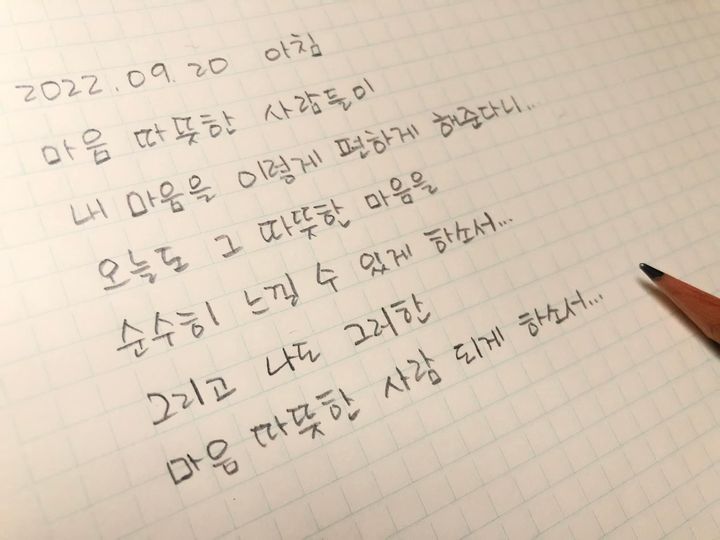 2022.09.20 아침
마음 따뜻한 사람들이
내 마음을 이렇게 편하게 해준다니...
오늘도 그 따뜻한 마음을
순수히 느낄 수 있게 하소서...
그리고 나도 그러한
마음 따뜻한 사람 되게 하소서...